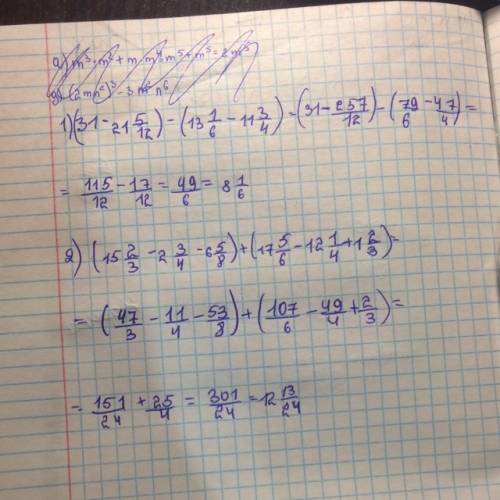 1) (31 - 21 5/12) - (13 1/6 - 11 3/4) = (31 - 257/12) - (79/6 - 47/4) =
= 115/12 - 17/12 = 49/6 = 8 1/6
2) (15 2/3 - 2 3/4 - 6 5/8) + (17 5/6 - 12 1/4 + 1 2/3) =
= (47/3 - 11/4 - 53/8) + (107/6 - 49/4 + 2/3) =
= 151/24 + 25/4 = 301/24 = 12 13/24